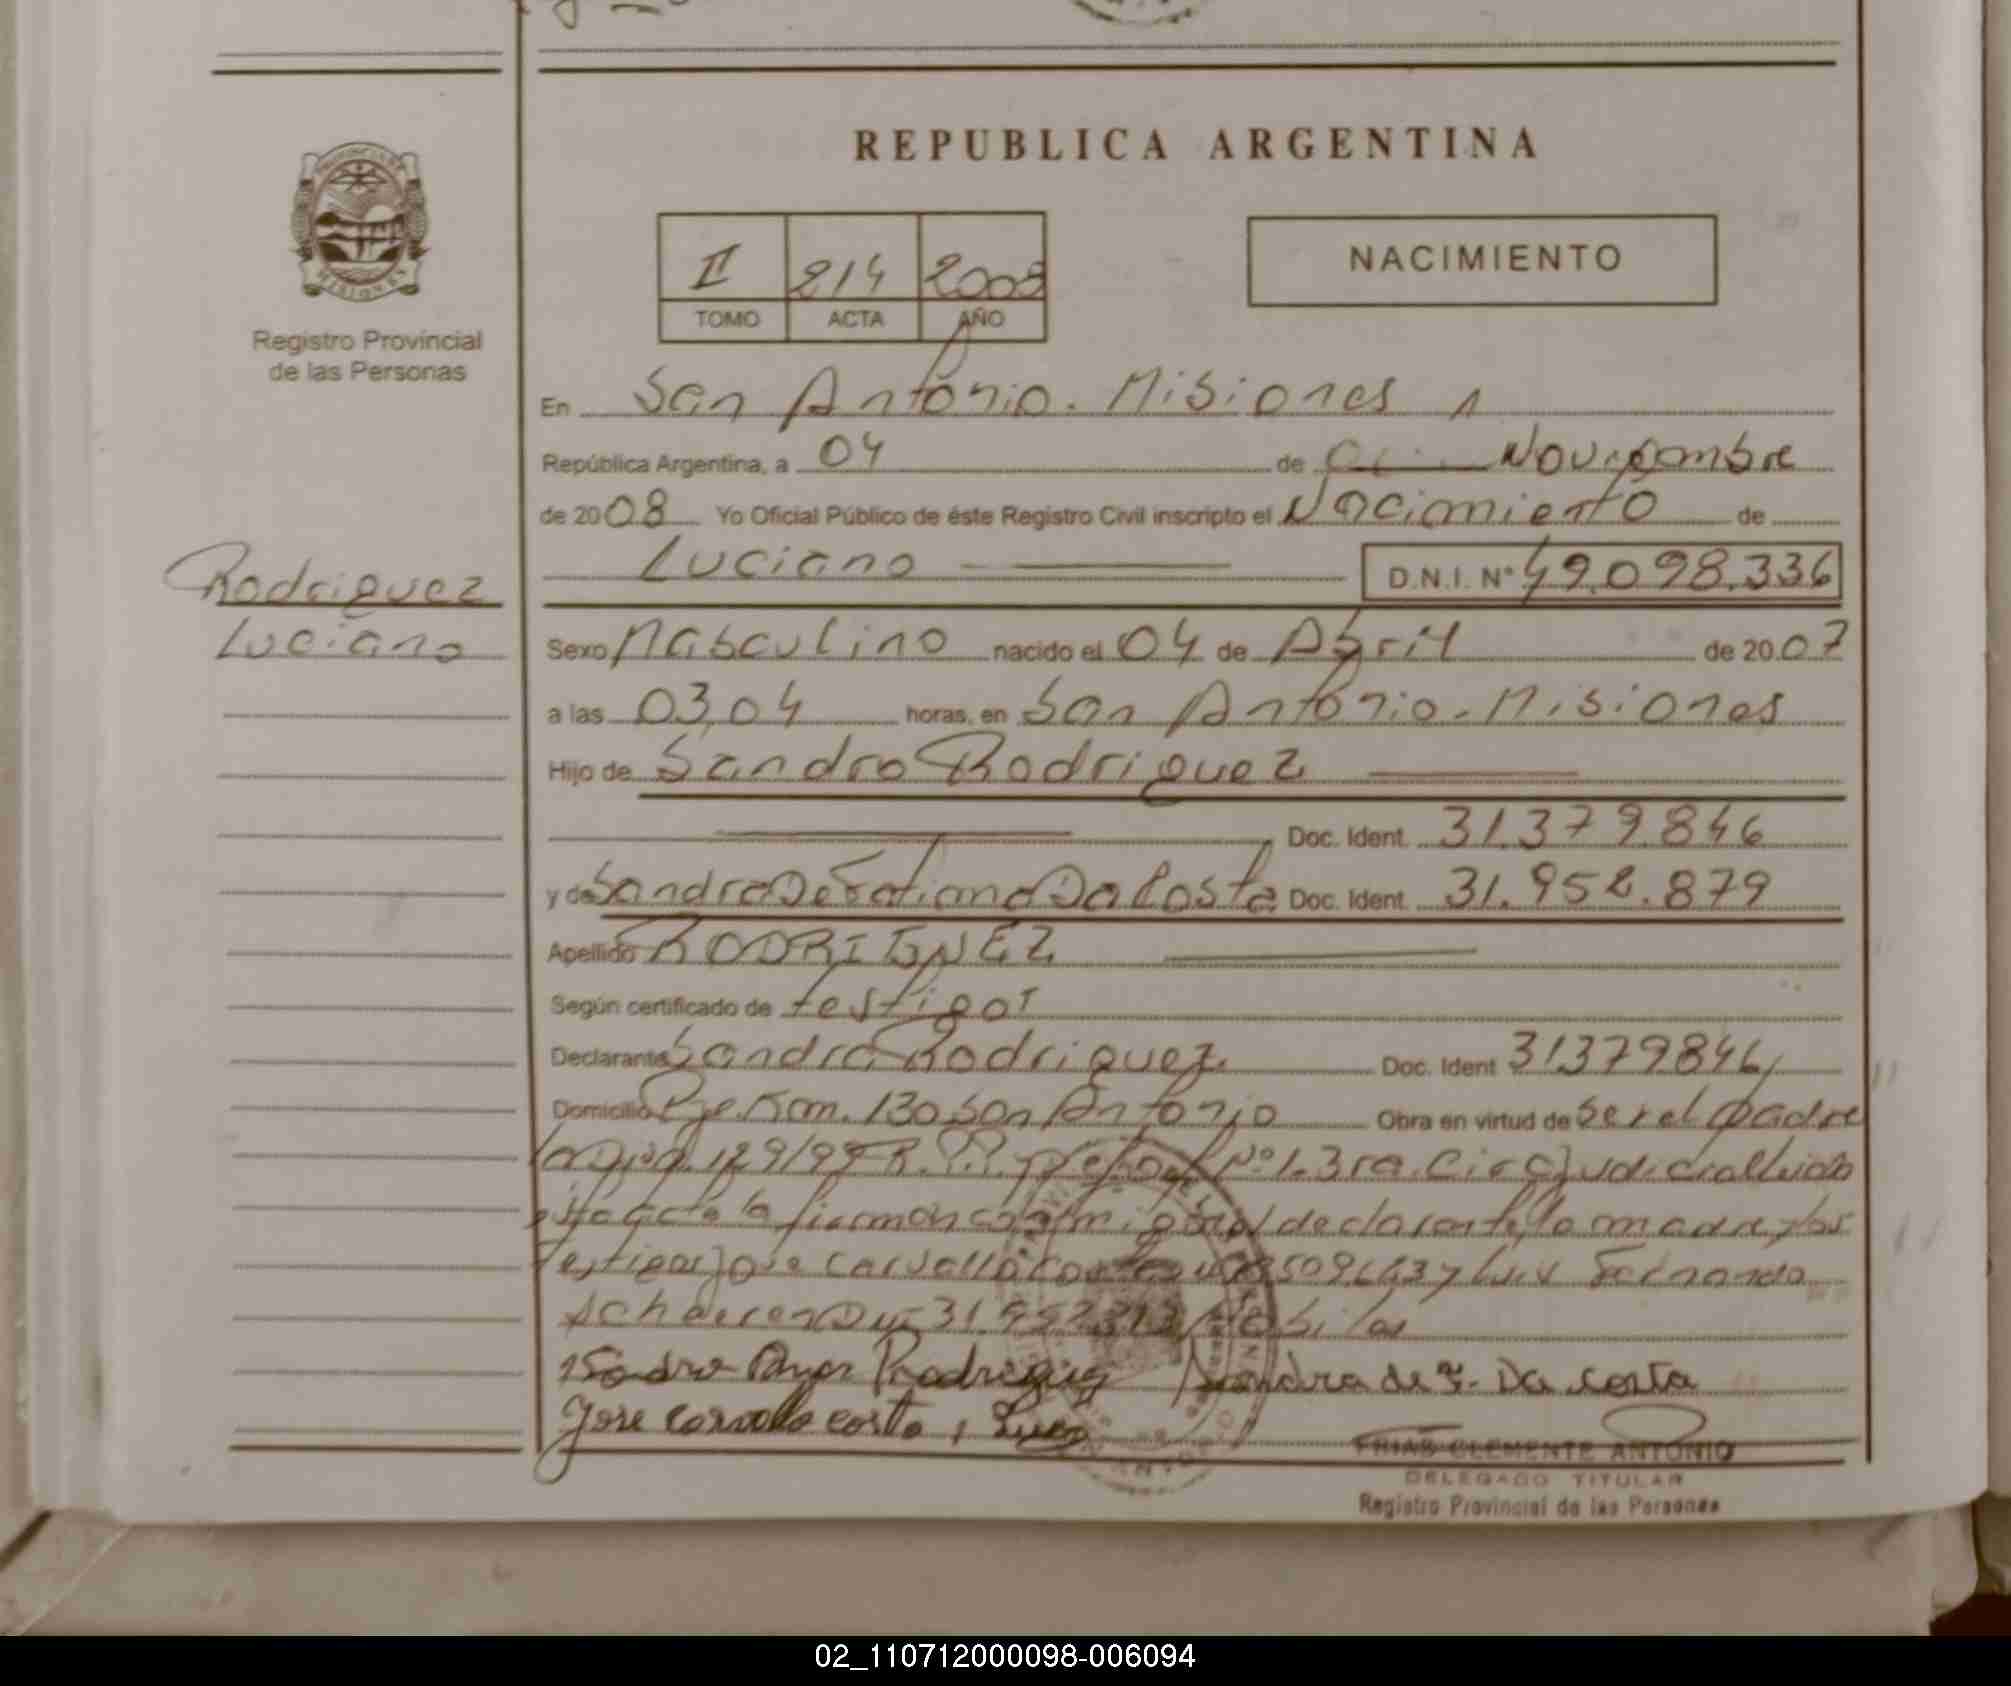 REPUBLICA ARGENTINA
PROVINCIA DE
MISIONES
Registro Provincial
de las Personas
II 214 2008
TOMO ACTA AÑO
NACIMIENTO
En San Antonio. Misiones
República Argentina, a 04 de Noviembre
de 2008 Yo Oficial Público de éste Registro Civil inscripto el Nacimiento de
Luciano D.N.I. Nº 49.098.336
Rodriguez
Luciano
Sexo Masculino nacido el 04 de Abril de 2007
a las 03,04 horas, en San Antonio. Misiones
Hijo de Sandro Rodriguez
Doc. Ident. 31.379.846
y de Sandra De Fatima Da Costa Doc. Ident. 31.952.879
Apellido RODRIGUEZ
Según certificado de testigos
Declarante Sandro Rodriguez Doc. Ident 31379846
Domicilio Pje. Km. 130 San Antonio Obra en virtud de Ser el padre
Nº 1. 3ra. Judicial
esta acta la firman el declarante, la madre y los
testigos Jose Carvallo Costa y Luis Fernando
habiles
Sandro Rodriguez Sandra de F. Da costa
Jose Carvallo costa
FRIAS CLEMENTE ANTONIO
DELEGADO TITULAR
Registro Provincial de las Personas
02_110712000098-006094